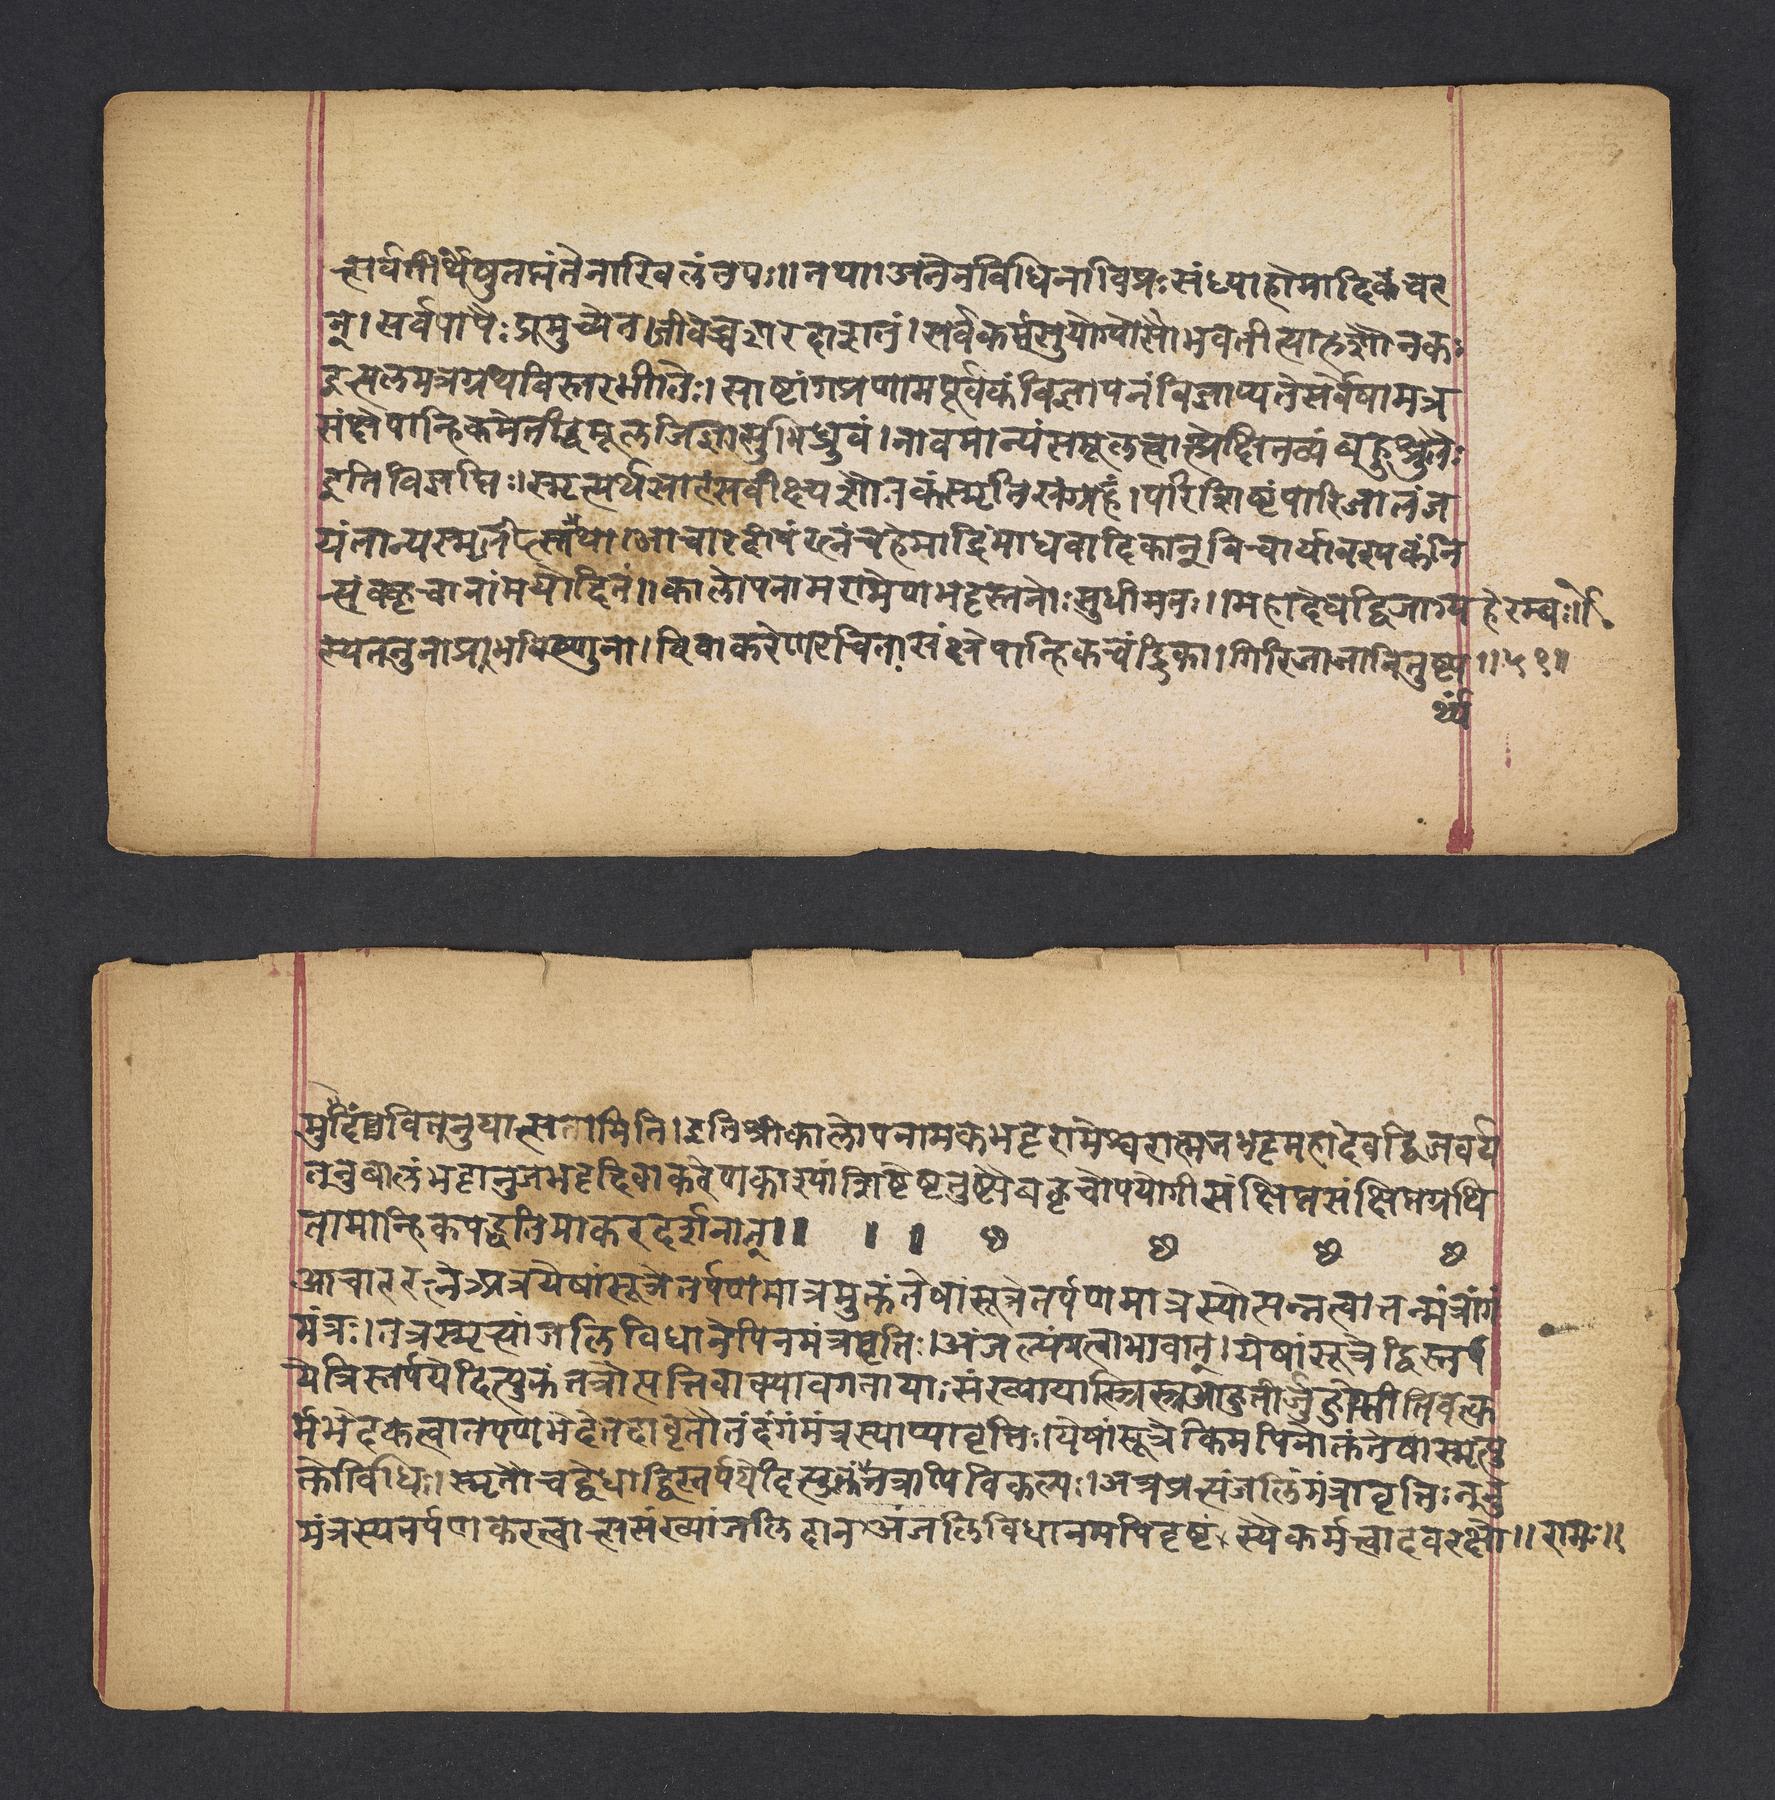 त्सर्वतीर्थेषुतप्तंतेनाखिलंतपः॥तथा।अनेनविधिनाविप्रःसंध्याहोमादिकंचरे
त्।सर्वपापैःप्रमुच्येत।जीवेच्चशरदांशतं।सर्वकर्मसुयोग्योसौभवतीत्याहशौनकः
इत्यलमत्रग्रंथविस्तरभीतेः।साष्टांगप्रणामपूर्वकंविज्ञापनंविज्ञाप्यतेसर्वेषामत्र
संक्षेपान्हिकमेतद्धिमूलजिज्ञासुभिर्ध्रुवं।नावमान्यंसमूलत्वात्प्रेक्षितव्यंबहुश्रुतैः
इतिविज्ञप्तिः।स्मृत्यर्थसारंसवीक्ष्यशौनकंस्मृतिसंग्रहं।परिशिष्टंपारिजातंज
यंतान्यस्मृतीस्तथा।आचारदीपंरत्नंचहेमाद्रिंमाधवादिकान्विचार्यावश्यकंनि
त्यंबव्हृचानांमयोदितं॥कालोपनामरामेणभट्टस्तनोःसुधीमतः॥महादेवद्विजाग्र्य
स्यतनुनाप्रभविष्णुना।दिवाकरेणरचितासंक्षेपान्हिकचंद्रिका।गिरिजाजानितुष्ट्य॥५१॥
र्थं
मुदंचवितनुयात्सतामिति।इतिश्रीकालोपनामकभट्टरामेश्वरात्मजभट्टमहादेवद्विजवर्य
तनुबालंभट्टानुजभट्टदिवाकरेणकाश्यांशिष्टेष्टतुष्ट्यैबव्हृचोपयोगीसंक्षिप्तसंक्षिप्तग्रथि
तामान्हिकपद्धतिमाकरदर्शनात्॥ ।  ।
आचाररत्नेअत्रयेषांसूत्रेतर्पणमात्रमुक्तंतेषांसूत्रेतर्पणमात्रस्योसन्नत्वात्तन्मंत्रांगं
मंत्रः।तत्रस्मृत्यांजलिविधानेपिनमंत्रावृत्तिः।अंजल्यंगत्वाभावात्।येषांसूत्रेद्विस्तर्प
येत्रिस्तर्पयेदित्युक्तंतत्रोत्पत्तिवाक्यावगतायाःसंख्यायास्तिस्रआहुतीर्जुहोतीतिवत्क
र्मभेदकत्वात्तर्पणभेदेतदावृत्तौतदंगंमंत्रस्याप्यावृत्तिः।येषांसूत्रेकिमपिनोक्तंतेषांस्मृत्यु
क्तोविधिः।स्मृतौचद्वेधाद्विस्तर्पयेदित्युक्तंतत्रापिविकल्पः।अत्रप्रत्यंजलिंमंत्रावृत्तिःननु
मंत्रस्यतर्पणकरत्वात्ससंख्यांजलिदानअंजलिविधानमपिदृष्टं स्यैकर्मत्वादवरक्षो॥रामः॥१